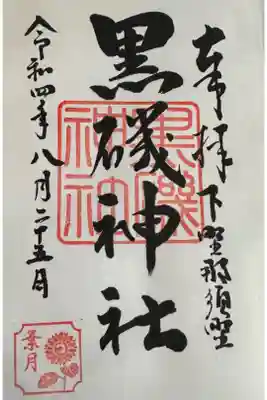 奉拝下野那須野
黒磯神社
黒磯
神社
令和四年八月二十五日
葉月